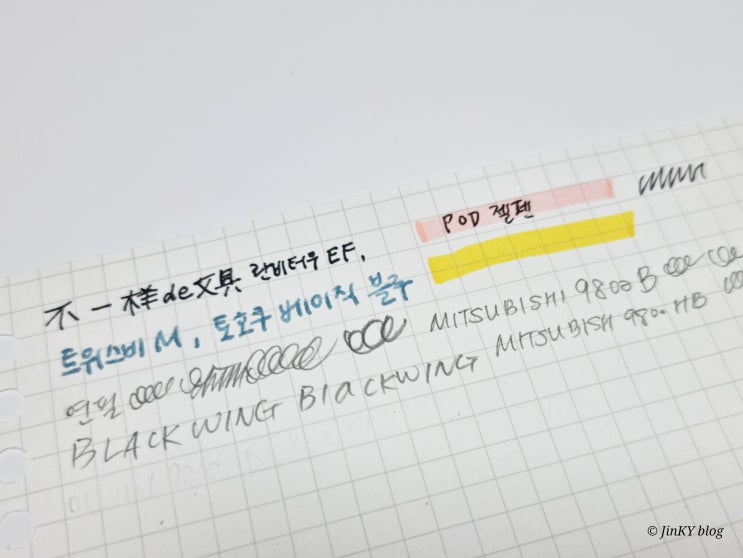 POD 젤펜
不一样de文具 란비터우 EF,
트위스비 M, 토호쿠 베이직 블루
연필
MITSUBISHI 9800 B
BLACKWING BlACKWING
MITSUBISH 9800 HB
© JinKY blog